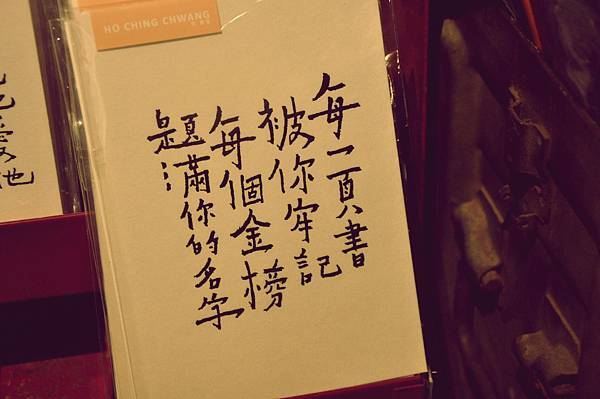 HO CHING CHWANG
每一頁書
被你牢記
每個金榜
題滿你的名字
愛他